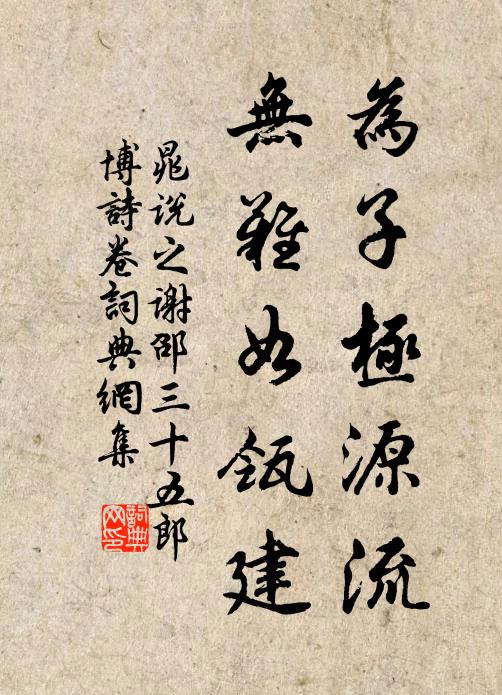 為子極源流
無難如瓴建
晁說之謝邵三十五郎
博詩卷詞典網集
詞典
网印